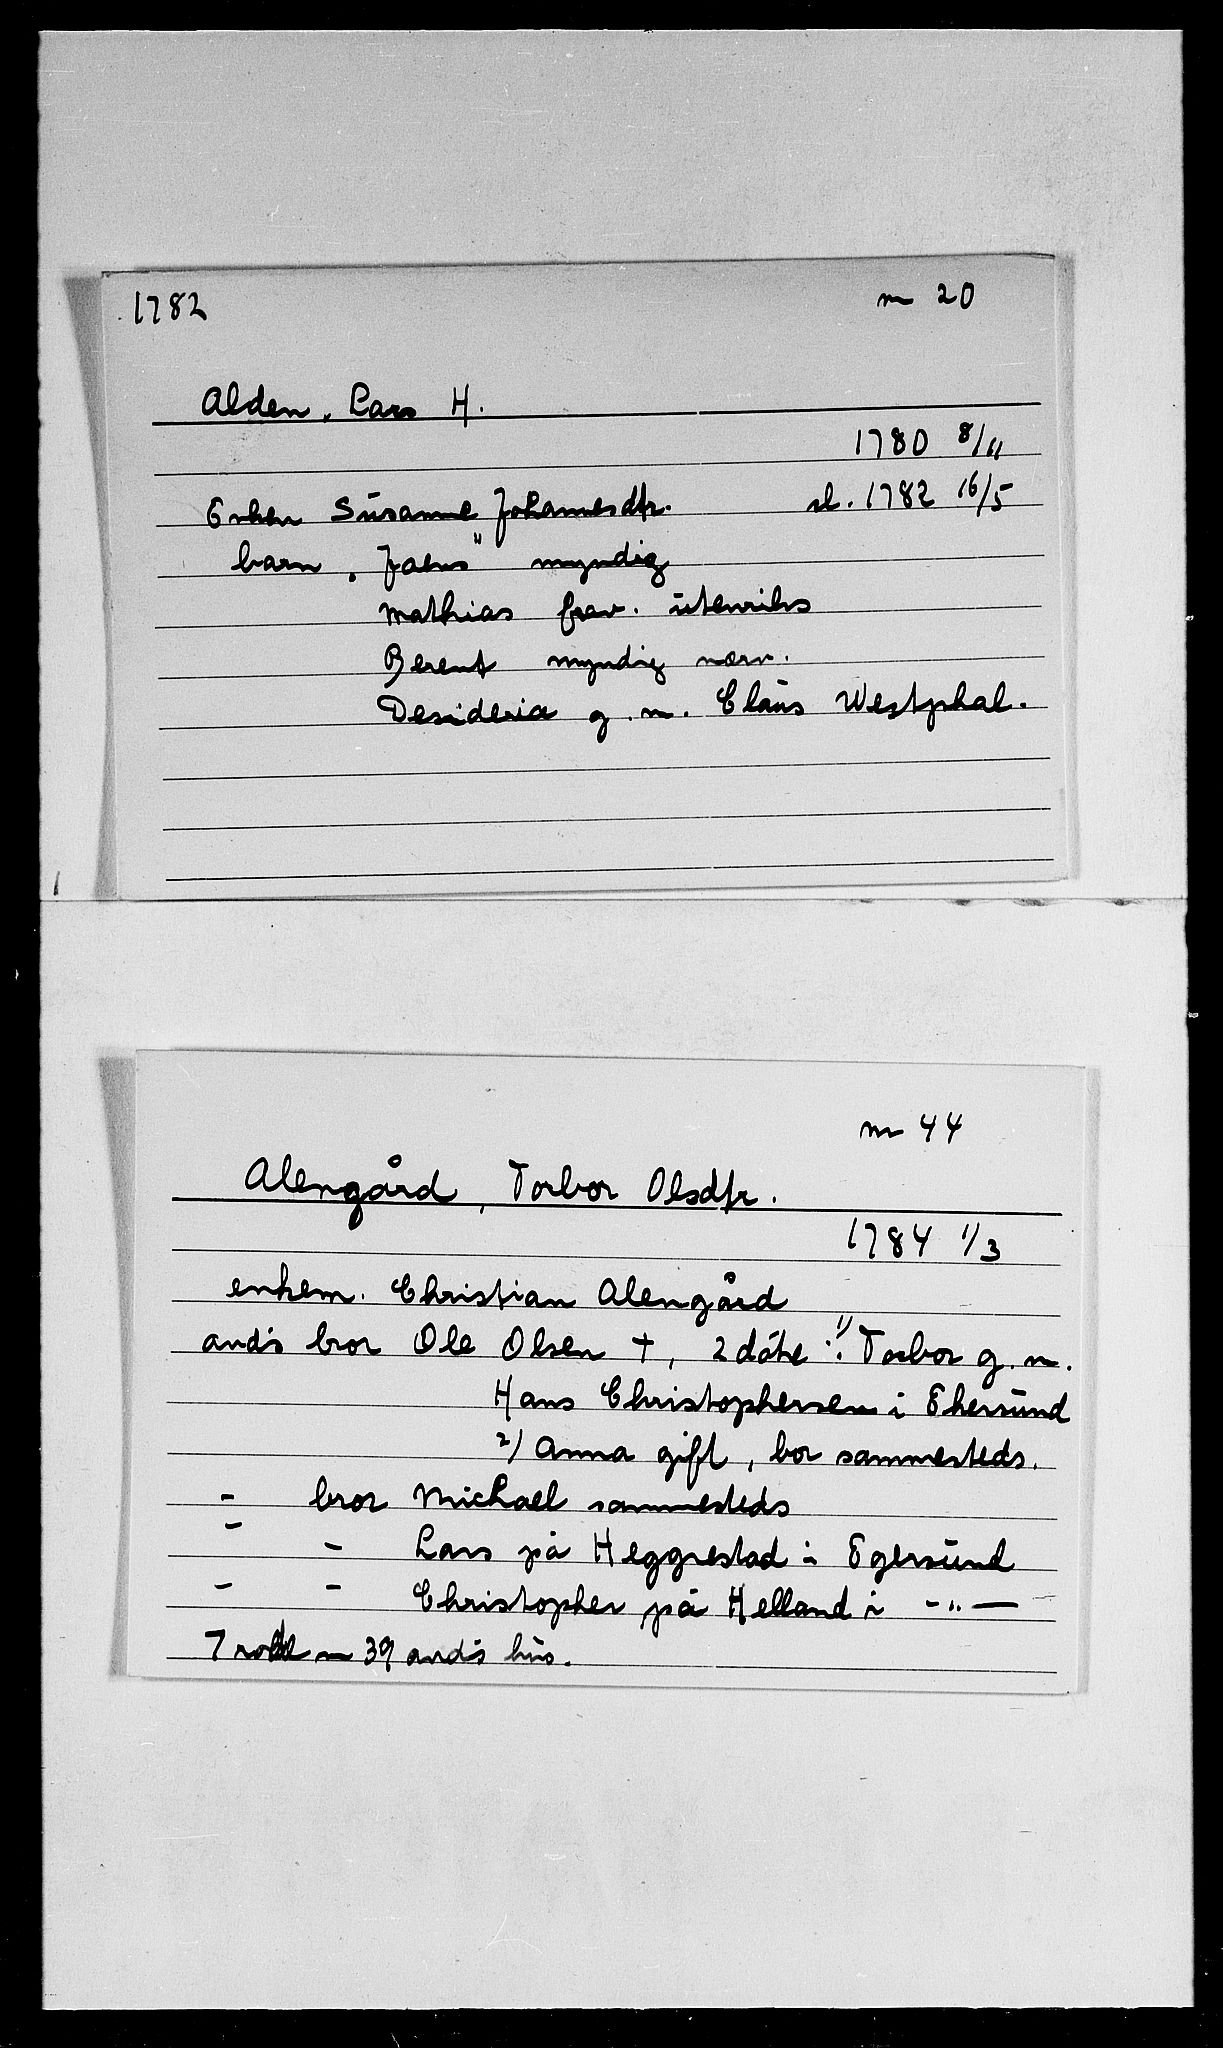 1782 m 20
Alden, Lars H.
1780 8/11
Enken Susanne Johannesdtr. sl. 1782 16/5
barn "Jahns" myndig
Mathias frav. utenriks
Berent myndig nærv.
Desideria g. m. Claus Westphal.
m 44
Alengård, Torbor Olsdtr.
1784 1/3
enkem. Christian Alengård
avd's bror Ole Olsen +, 2 døtre: 1) Torbor g. m.
Hans Christophersen i Ekersund
2) Anna gift, bor sammesteds.
- bror Michael sammesteds
- - Lars på Heggrestad i Egersund
- - Christopher på Helland i -"-
7 rode m 39 avd's hus.